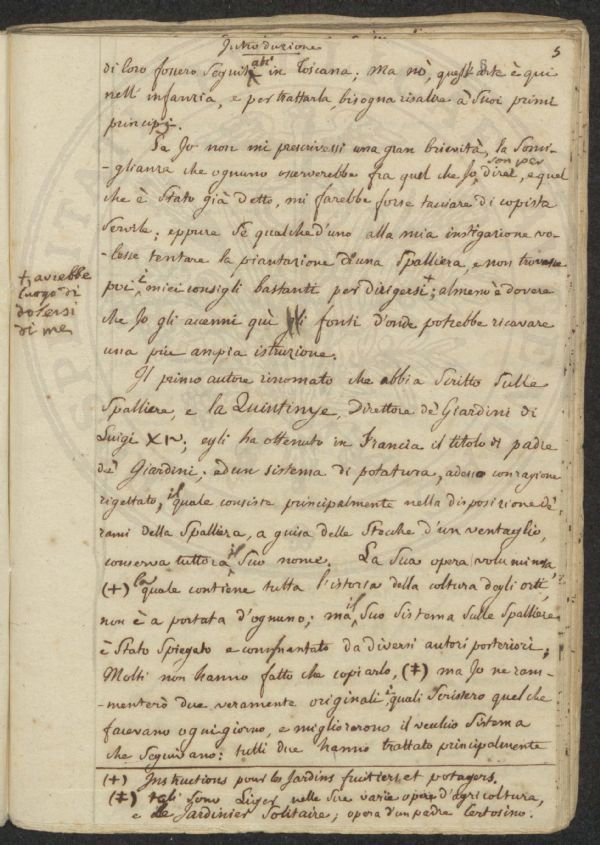 Introduzione
5
di loro fossero seguitabili in Toscana; ma nò, quest'arte è quì
nell'infanzia, e per trattarla, bisogna risalire à suoi primi
principj.
Se Jo non mi prescrivessi una gran brievità, la somi-
-glianza che ognuno osserverebbe fra quel che Jo son per dire, e quel
che è stato già detto, mi farebbe forse tacciare di copista
servile; eppure se qualched'uno alla mia instigazione vo-
-lesse tentare la piantazione d'una Spalliera, e non trovasse
poi i miei consigli bastanti per dirigersi +; almeno è dovere
+ avrebbe
luogo di
dolersi
di me
che Jo gli accenni quì i fonti d'onde potrebbe ricavare
una più ampia istruzione.
Il primo autore rinomato che abbia scritto sulle
Spalliere, e la Quintinye, Direttore de Giardini di
Luigi XIV; egli ha ottenuto in Francia il titolo di padre
de Giardini; ed un sistema di potatura, adesso con ragione
rigettato, il quale consiste principalmente nella disposizione de
rami della Spalliera, a guisa delle stecche d'un ventaglio,
conserva tuttora il suo nome. La sua opera voluminosa,
(+) la quale contiene tutta l'istoria della coltura degli orti,
non è a portata d'ognuno; ma il suo sistema sulle Spalliere
è stato spiegato e comentato da diversi autori posteriori;
Molti non hanno fatto che copiarlo, (‡) ma Jo ne ram-
-menterò due veramente originali, i quali scrissero quel che
facevano ogni giorno, e migliorarono il vecchio sistema
che seguivano: tutti due hanno trattato principalmente
(+) Instructions pour les Jardins fruitiers et potagers.
(‡) tali sono Liger nelle sue varie opere d'agricoltura,
e Le Jardinier Solitaire; opera d'un padre Certosino.